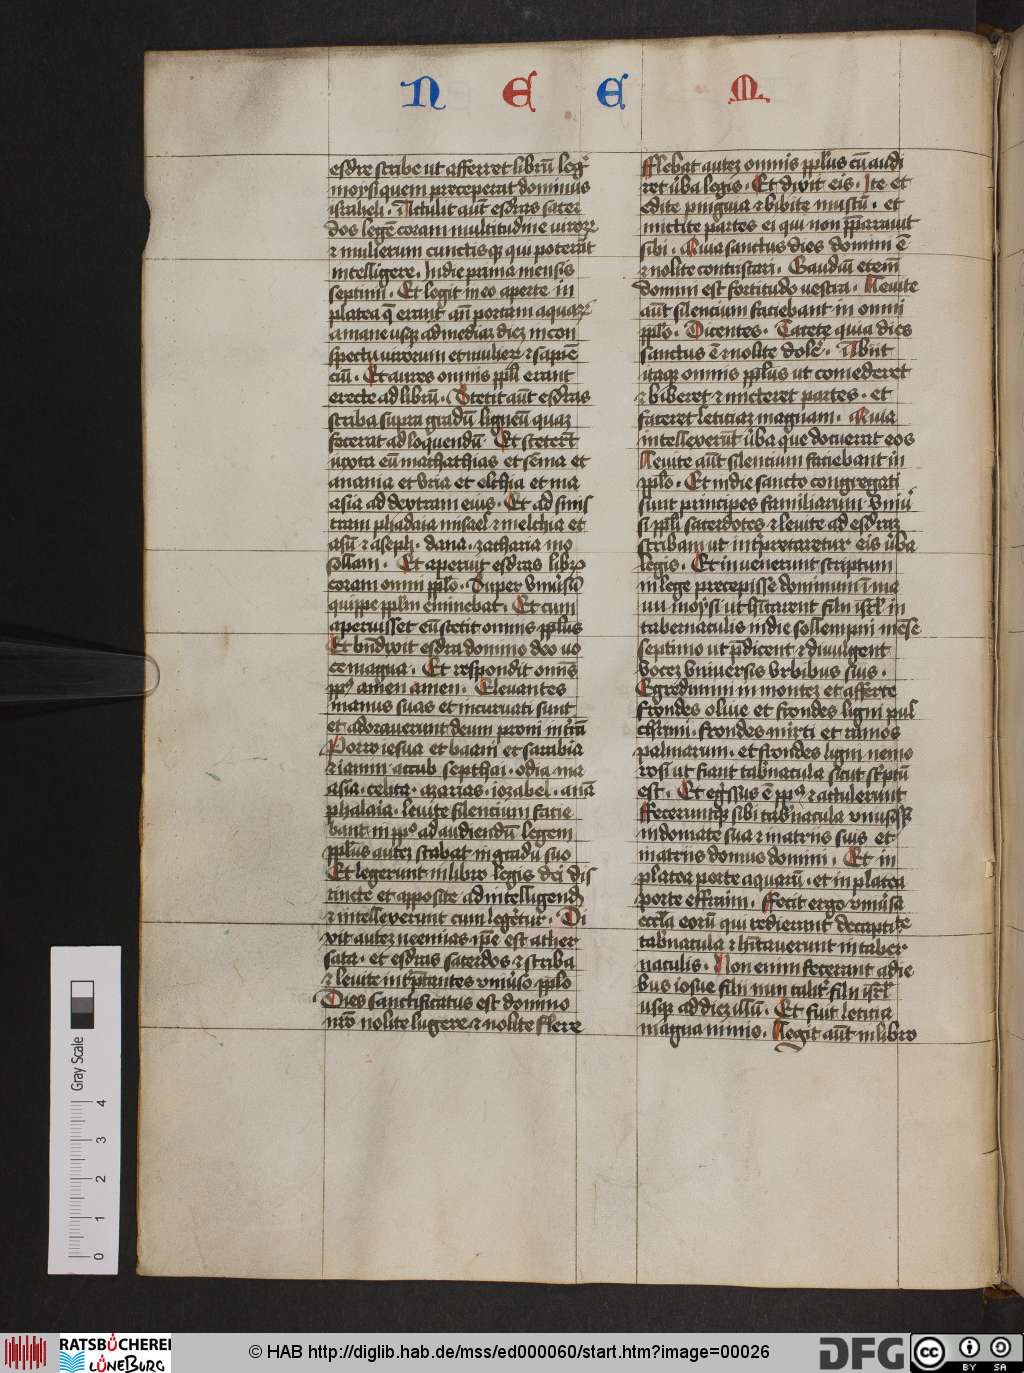 N E E M
esdre scribe ut afferret librū leg᷒
moysi quem preceperat dominus
israheli. Attulit aūt esdras sacer
dos legē coram multitudine uiroꝝ
⁊ mulierum cunctisqꝫ qui poterāt
intelligere. In die prima mensis
septimi. Et legit in eo aperte in
platea q̄ erant an̄ portam aquaꝝ
a mane usqꝫ ad mediaꝫ dieꝫ in con
spectu uirorum et mulieꝝ ⁊ sapiē
ciū. Et aures omnis ppl̄i erant
erecte ad librū. Stetit aūt esdras
scriba supra gradū ligneū quaꝫ
fecerat ad loquendū. Et steter̄t
iuxta eū mathathias et semma et
anania et vria et elchia et ma
asia ad dextram eius. Et ad sinis
tram phadaia misael ⁊ melchia et
asū ⁊ aseph. dana. zacharia mo
sollam. Et aperuit esdras libꝝ
coram omni ppl̄o. Super vniuˢū
quippe pplm̄ eminebat. Et cum
aperuisset eū stetit omnis ppl̄us
Et bn̄dixit esdra domino deo uo
ce magna. Et respondit om̄is
ppˢ amen amen. Eleuantes
manus suas et incuruati sunt
et adorauerunt deum proni in tr̄ā
Porro iesua et baam et sarabia
⁊ iamin accub septhai. odia ma
asia. celita. azarias. iozabel. anā
phalaia. leuite silencium facie
bant in ppˡo ad audiendū legem
ppl̄us auteꝫ stabat in gradu suo
Et legerunt in libro legis dei dis
tincte et apposite ad intelligendꝫ
⁊ intellexerunt cum legeretur. Di
xit auteꝫ neemias ip̄e est ather
sata. et esdras sacerdos ⁊ scriba
⁊ leuite int̄p̄tantes vniuˢo ppl̄o
Dies sanctificatus est domino
nr̄o nolite lugere ⁊ nolite flere
Flebat auteꝫ omnis ppl̄us cū audi
ret ūba legis. Et dixit eis. Ite et
edite pinguia ⁊ bibite mustū. et
mictite partes ei qui non pp̄arauit
sibi. Quia sanctus dies domini ē
⁊ nolite contristari. Gaudiū etem̄
domini est fortitudo vestra. Leuite
aūt silencium faciebant in omni
ppl̄o. Dicentes. Tacete quia dies
sanctus ē ⁊ nolite dolēˢ. Abiit
itaqꝫ omnis ppl̄us ut comederet
⁊ biberet ⁊ micteret partes. et
faceret leticiaꝫ magnam. Quia
intellexerūt ūba que docuerat eos
Leuite aūt silencium faciebant in
ppl̄o. Et in die sancto congregati
sunt principes familiarum vniuˢ
si ppl̄i sacerdotes ⁊ leuite ad esdraꝫ
scribam ut int̄pretaretur eis ūba
legis. Et inuenerunt scriptum
in lege precepisse dominum ī ma
nu moysi ut hītarent filii isrl̄ in
tabernaculis in die sollempni mēse
septimo ut p̄dicent ⁊ diuulgent
voceꝫ vniuersis vrbibus suis.
Egredimini in monteꝫ et afferte
frondes oliue et frondes ligni pul
cherrimi. frondes mirti et ramos
palmarum. et frondes ligni nemo
rosi ut fiant tab̄nacula sicut sc̄ptū
est. Et eg̅ssus ē ppˡs ⁊ actulerunt
Feceruntqꝫ sibi tab̄nacula vnusqˢqꝫ
in domate suo ⁊ in atriis suis et
in atriis domus domini. Et in
platea porte aquarū. et in platea
porte effraim. Fecit ergo vniuˢa
eccl̄a eorū qui redierant de captite
tab̄nacula ⁊ hītauerunt in taber
naculis. Non enim fecerant a die
bus iosue filii nun talit᷒ filii isrl̄
usqꝫ ad dieꝫ illū. Et fuit leticia
magna nimis. Legit aūt in libro
Gray Scale
4
3
2
1
0
RATSBÜCHEREI
LÜNEBURG
© HAB http://diglib.hab.de/mss/ed000060/start.htm?image=00026
DFG
cc BY SA